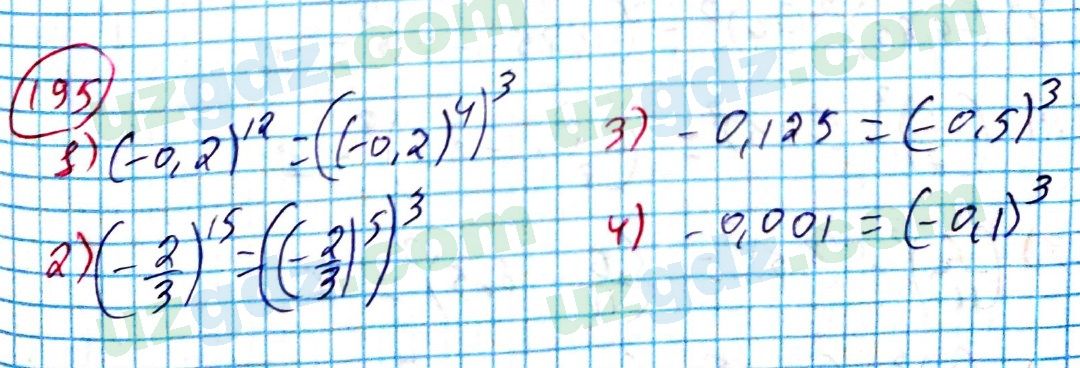 195
1) (-0,2)^12 = ((-0,2)^4)^3
2) (-2/3)^15 = ((-2/3)^5)^3
3) -0,125 = (-0,5)^3
4) -0,001 = (-0,1)^3
uzgdz.com
uzgdz.com
uzgdz.com
uzgdz.com